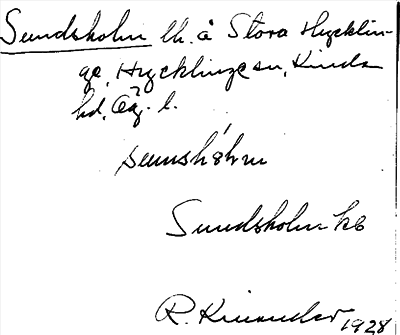 Sundsholm lh. å Stora Hycklin-
ge, Hycklinge sn, Kinda
hd, Ög. l.
sunshólm
Sundsholm kb
R. Kinander 1928